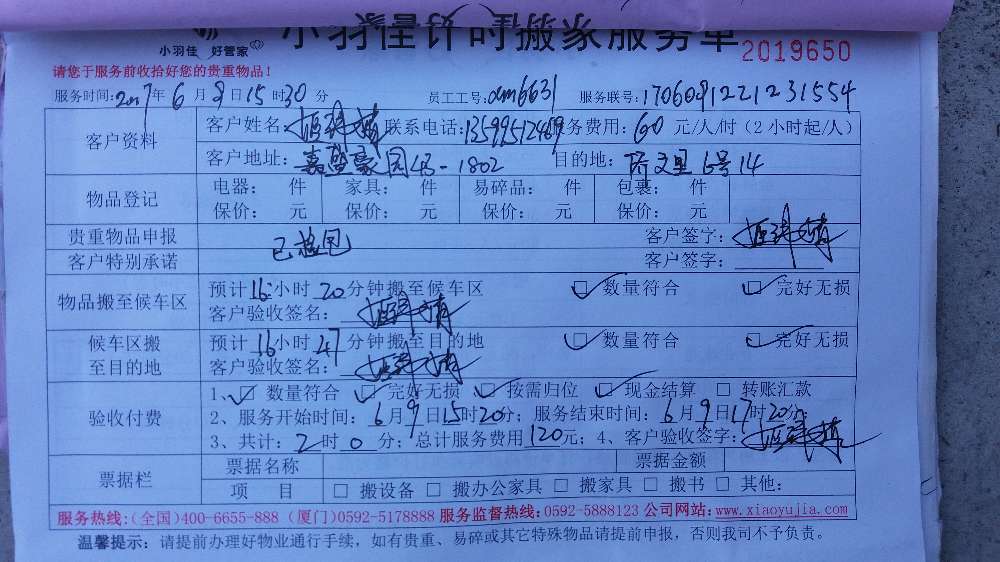 小羽佳 好管家
小羽佳计时搬家服务单 2019650
请您于服务前收拾好您的贵重物品！
服务时间：2017年6月9日15时30分 员工工号：xm6631 服务联号：1706081221231554
客户资料 客户姓名： 联系电话： 服务费用：60元/人/时（2小时起/人）
客户地址：嘉盛豪园 -1802 目的地： 文里6号14
物品登记 电器： 件 家具： 件 易碎品： 件 包裹： 件
保价： 元 保价： 元 保价： 元 保价： 元
贵重物品申报 已检包 客户签字：
客户特别承诺 客户签字：
物品搬至候车区 预计16小时20分钟搬至候车区 ☑数量符合 ☑完好无损
客户验收签名：
候车区搬至目的地 预计16小时47分钟搬至目的地 ☑数量符合 ☑完好无损
客户验收签名：
验收付费 1、☑数量符合 ☑完好无损 ☑按需归位 ☑现金结算 □转账汇款
2、服务开始时间：6月9日15时20分；服务结束时间：6月9日17时20分
3、共计：2时0分；总计服务费用120元；4、客户验收签字：
票据栏 票据名称 票据金额
项 目 □搬设备 □搬办公家具 □搬家具 □搬书 □其他：
服务热线：(全国)400-6655-888 (厦门)0592-5178888 服务监督热线：0592-5888123 公司网站：www.xiaoyujia.com
温馨提示：请提前办理好物业通行手续，如有贵重、易碎或其它特殊物品请提前申报，否则我司不予负责。